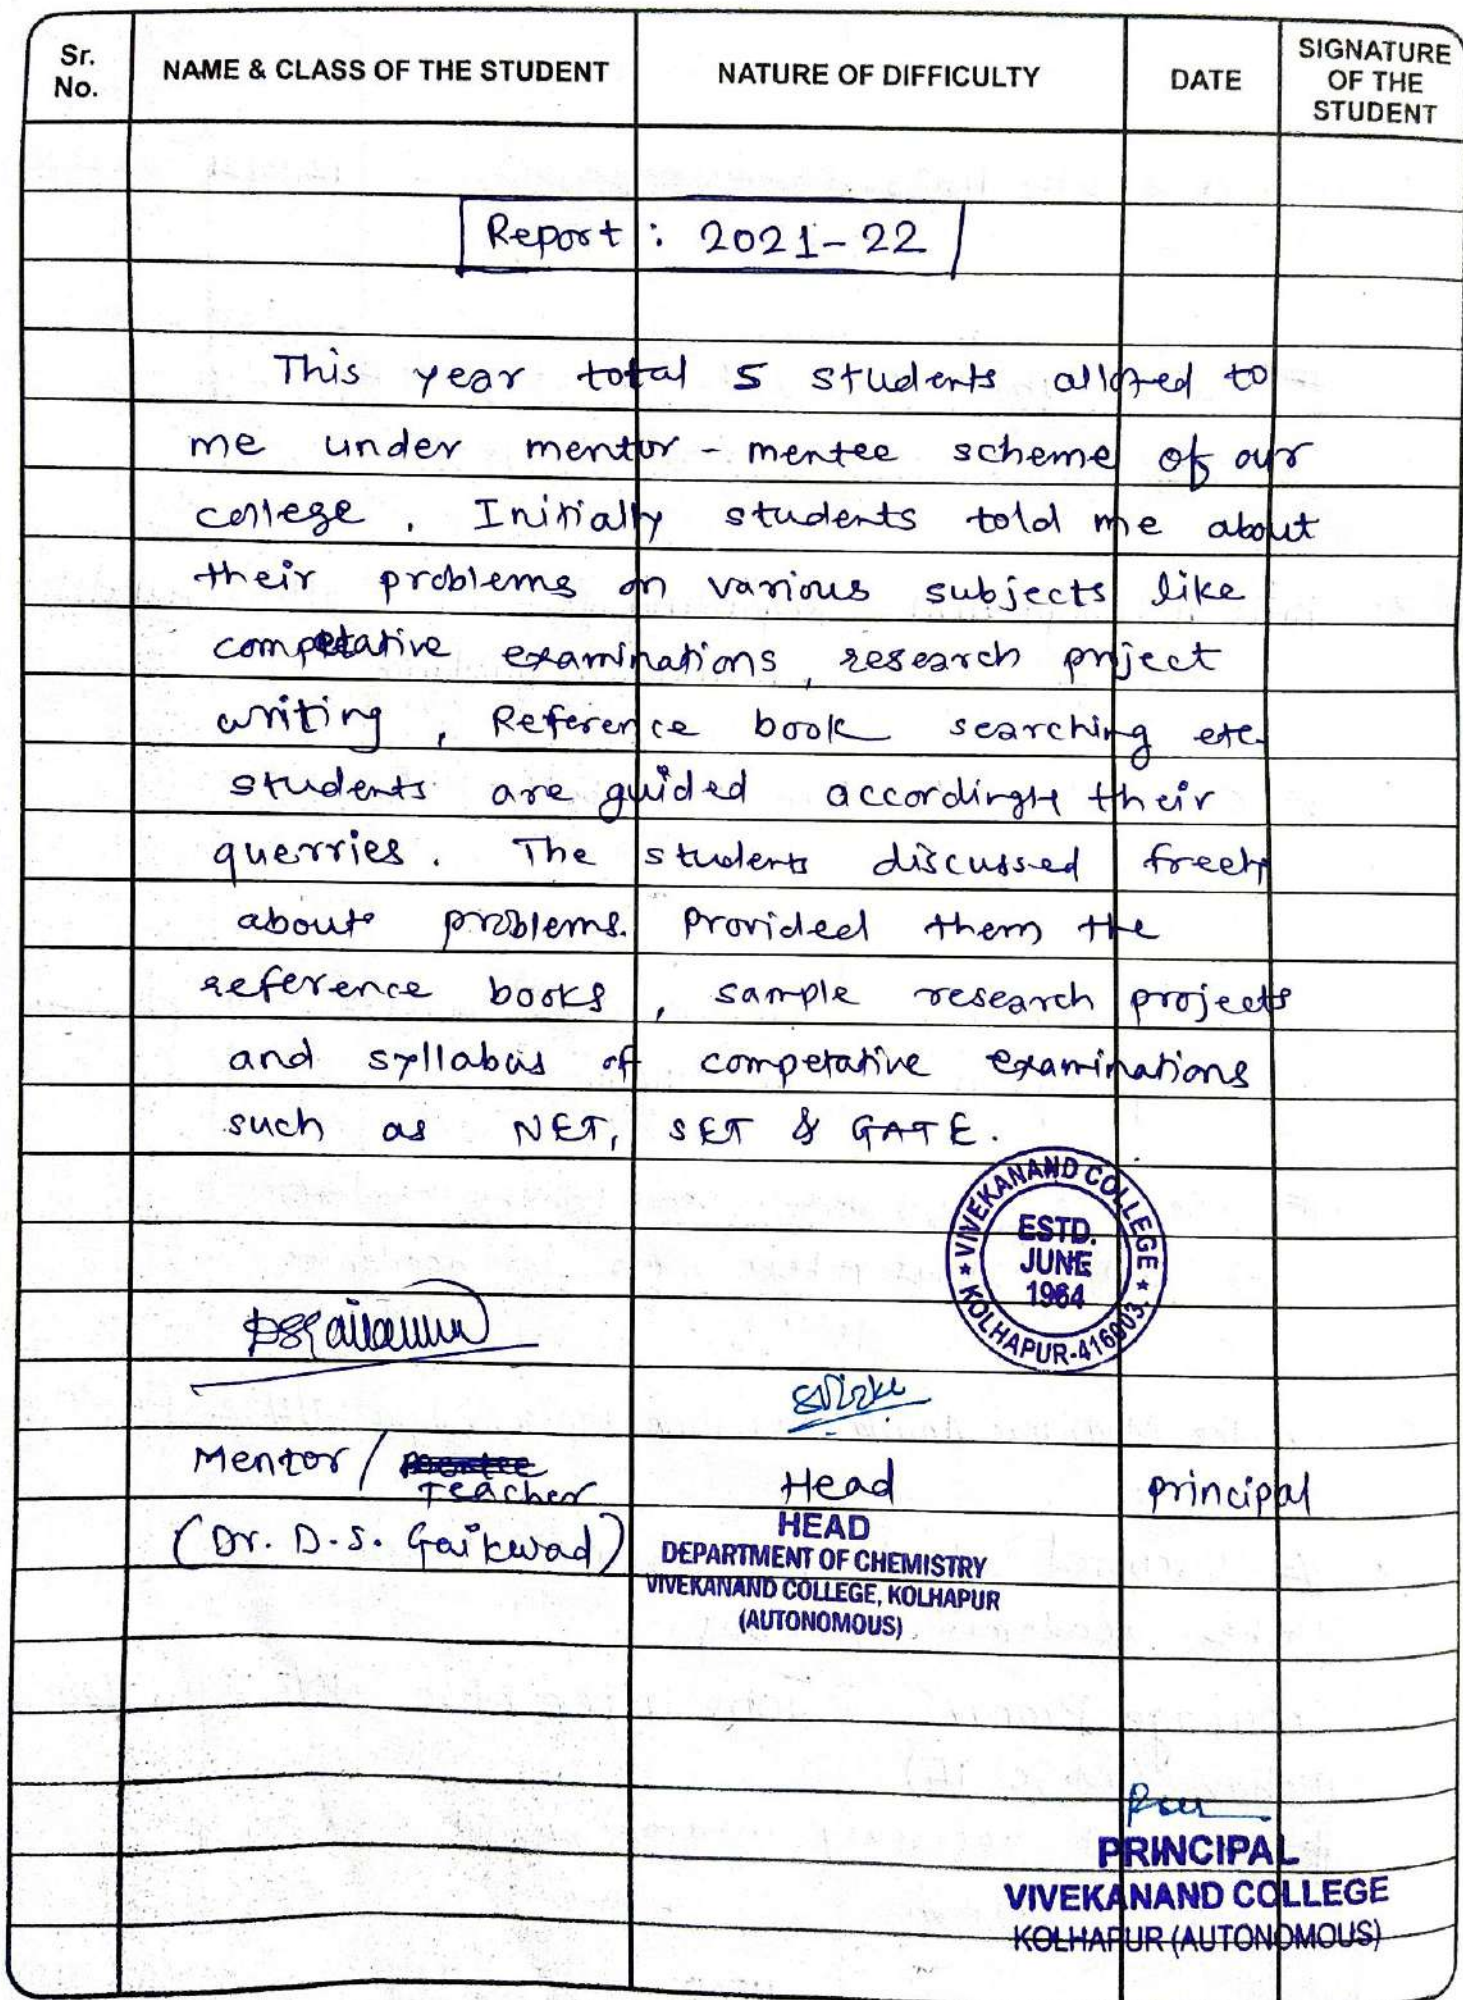 Sr. No.
NAME & CLASS OF THE STUDENT
NATURE OF DIFFICULTY
DATE
SIGNATURE OF THE STUDENT
Report : 2021-22
This year total 5 students alloted to
me under mentor - mentee scheme of our
college . Initially students told me about
their problems on various subjects like
competative examinations, research project
writing , Reference book searching etc.
students are guided accordingly their
querries . The students discussed freely
about problems. Provided them the
reference books , sample research projects
and syllabus of competative examinations
such as NET, SET & GATE.
VIVEKANAND COLLEGE
KOLHAPUR-416003.
ESTD.
JUNE
1964
Mentor / Teacher
(Dr. D.S. Gaikwad)
Head
HEAD
DEPARTMENT OF CHEMISTRY
VIVEKANAND COLLEGE, KOLHAPUR
(AUTONOMOUS)
principal
PRINCIPAL
VIVEKANAND COLLEGE
KOLHAPUR (AUTONOMOUS)